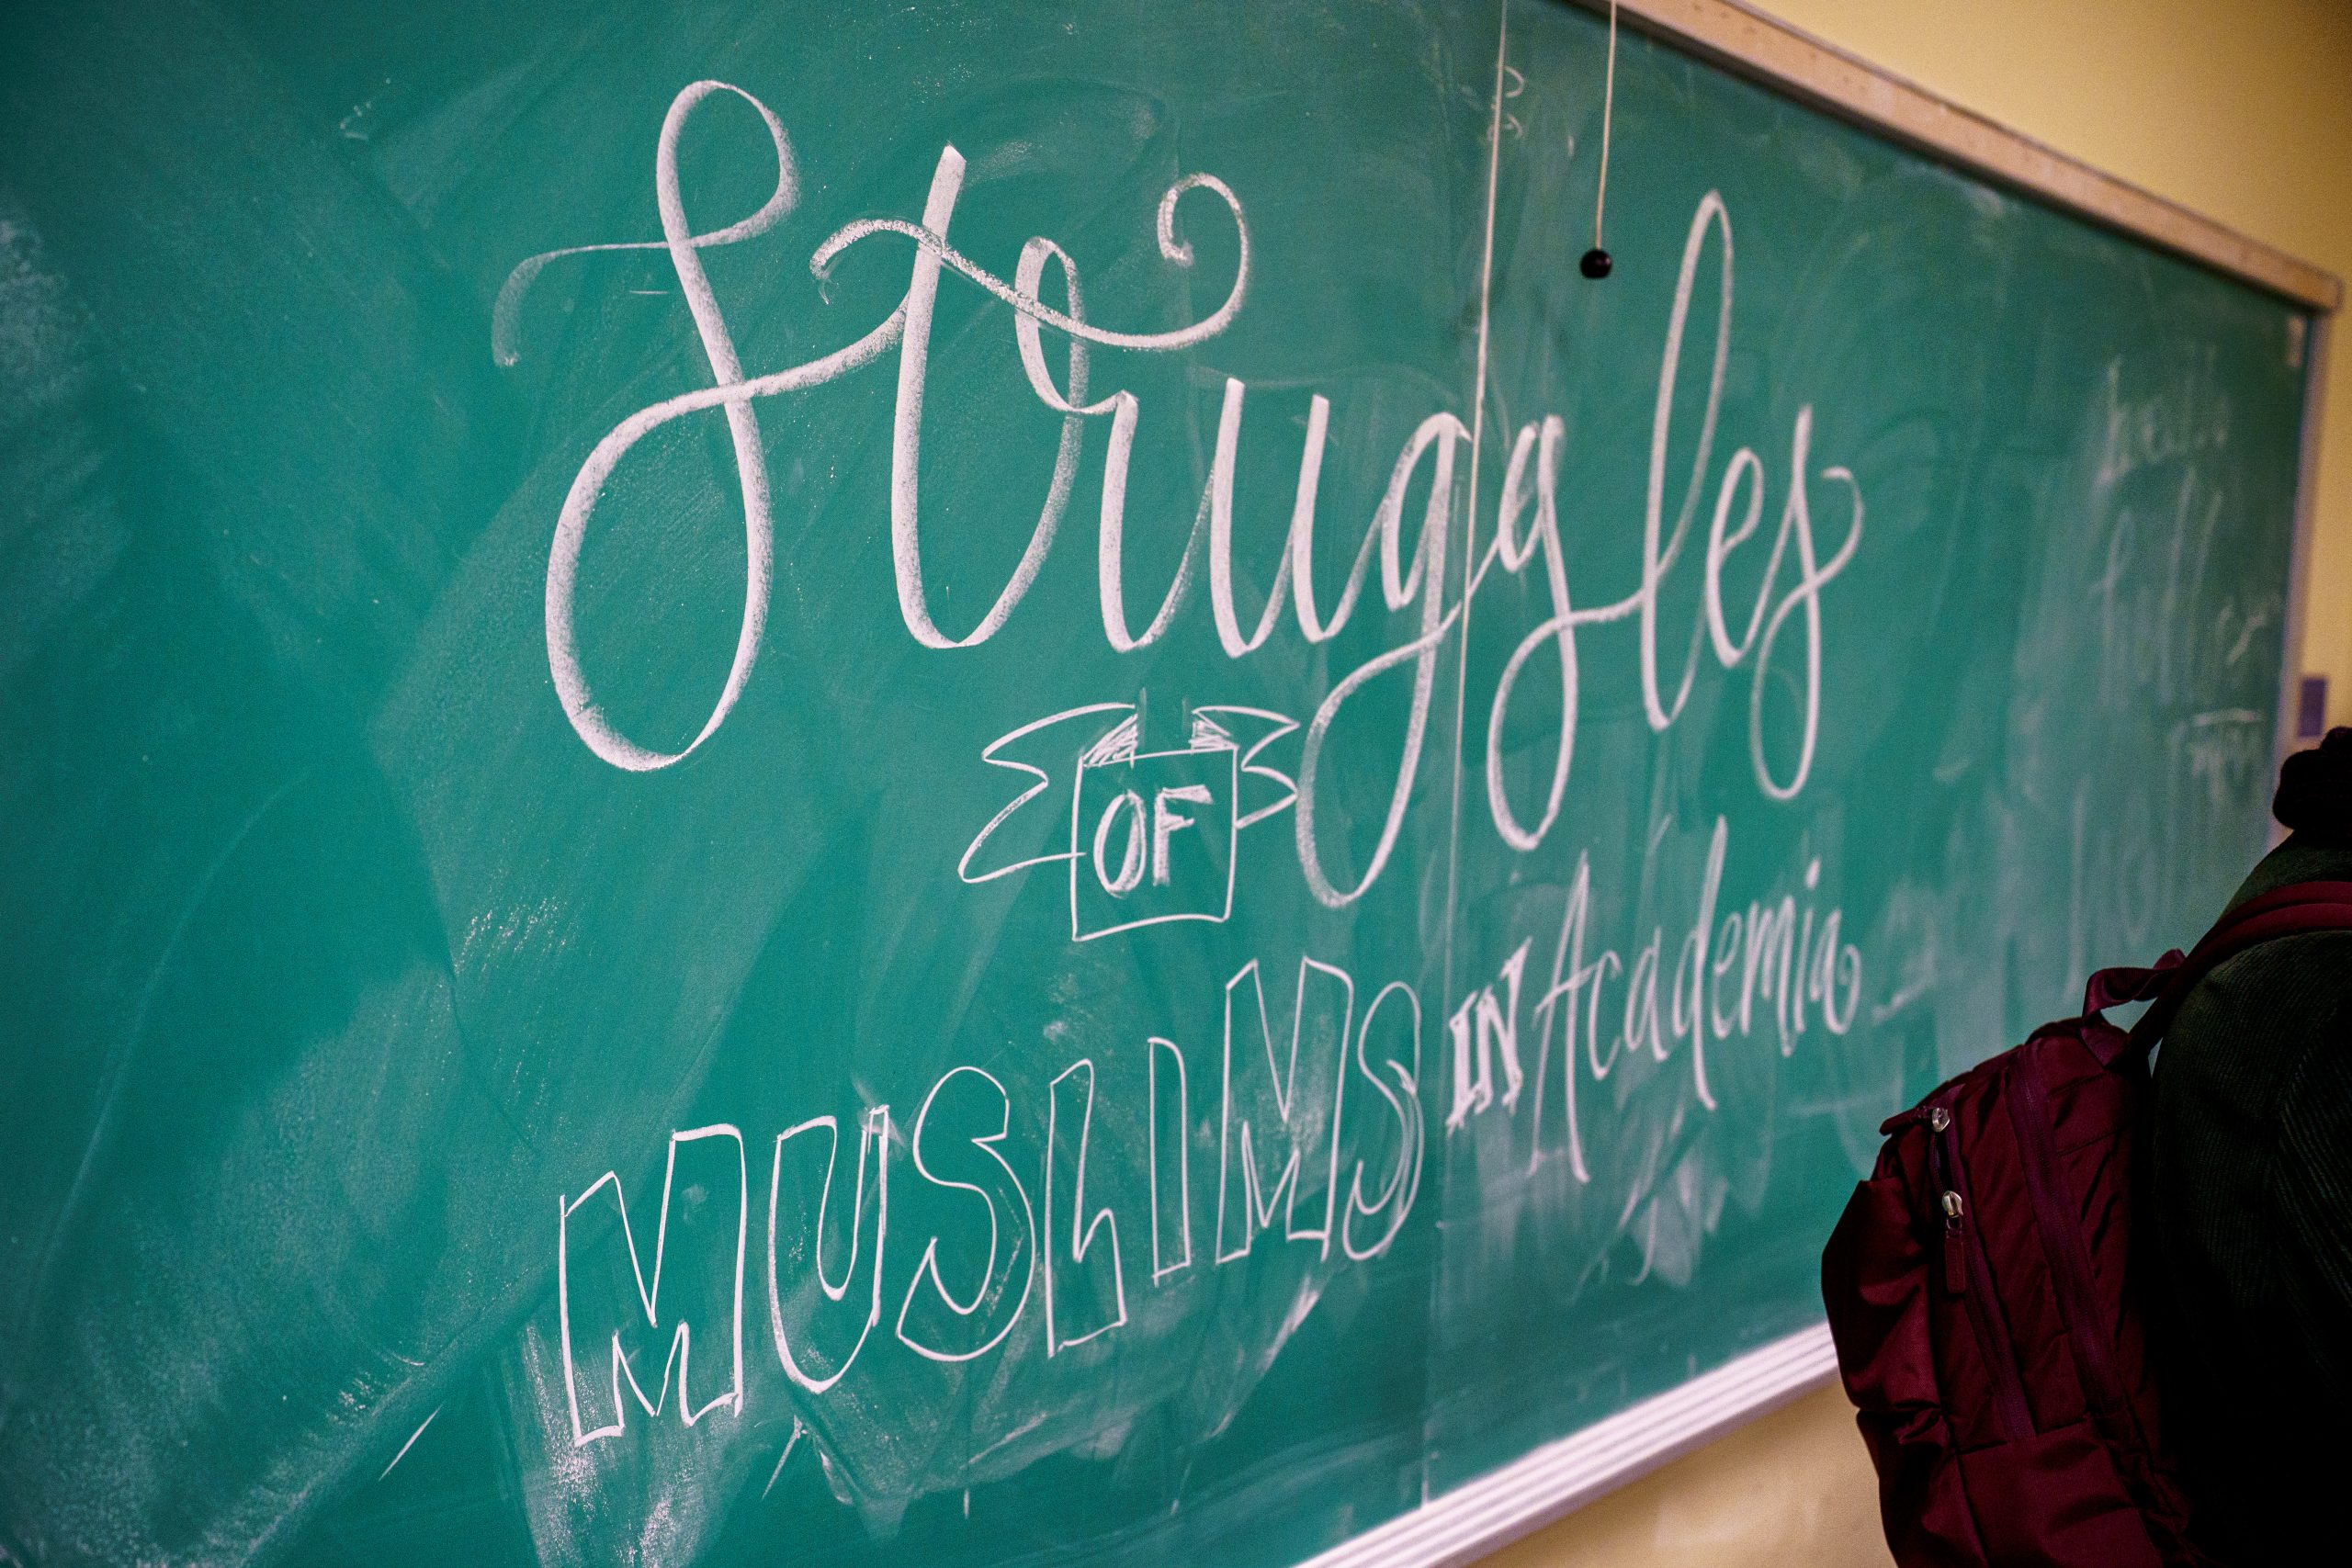 Struggles
OF
MUSLIMS IN Academia